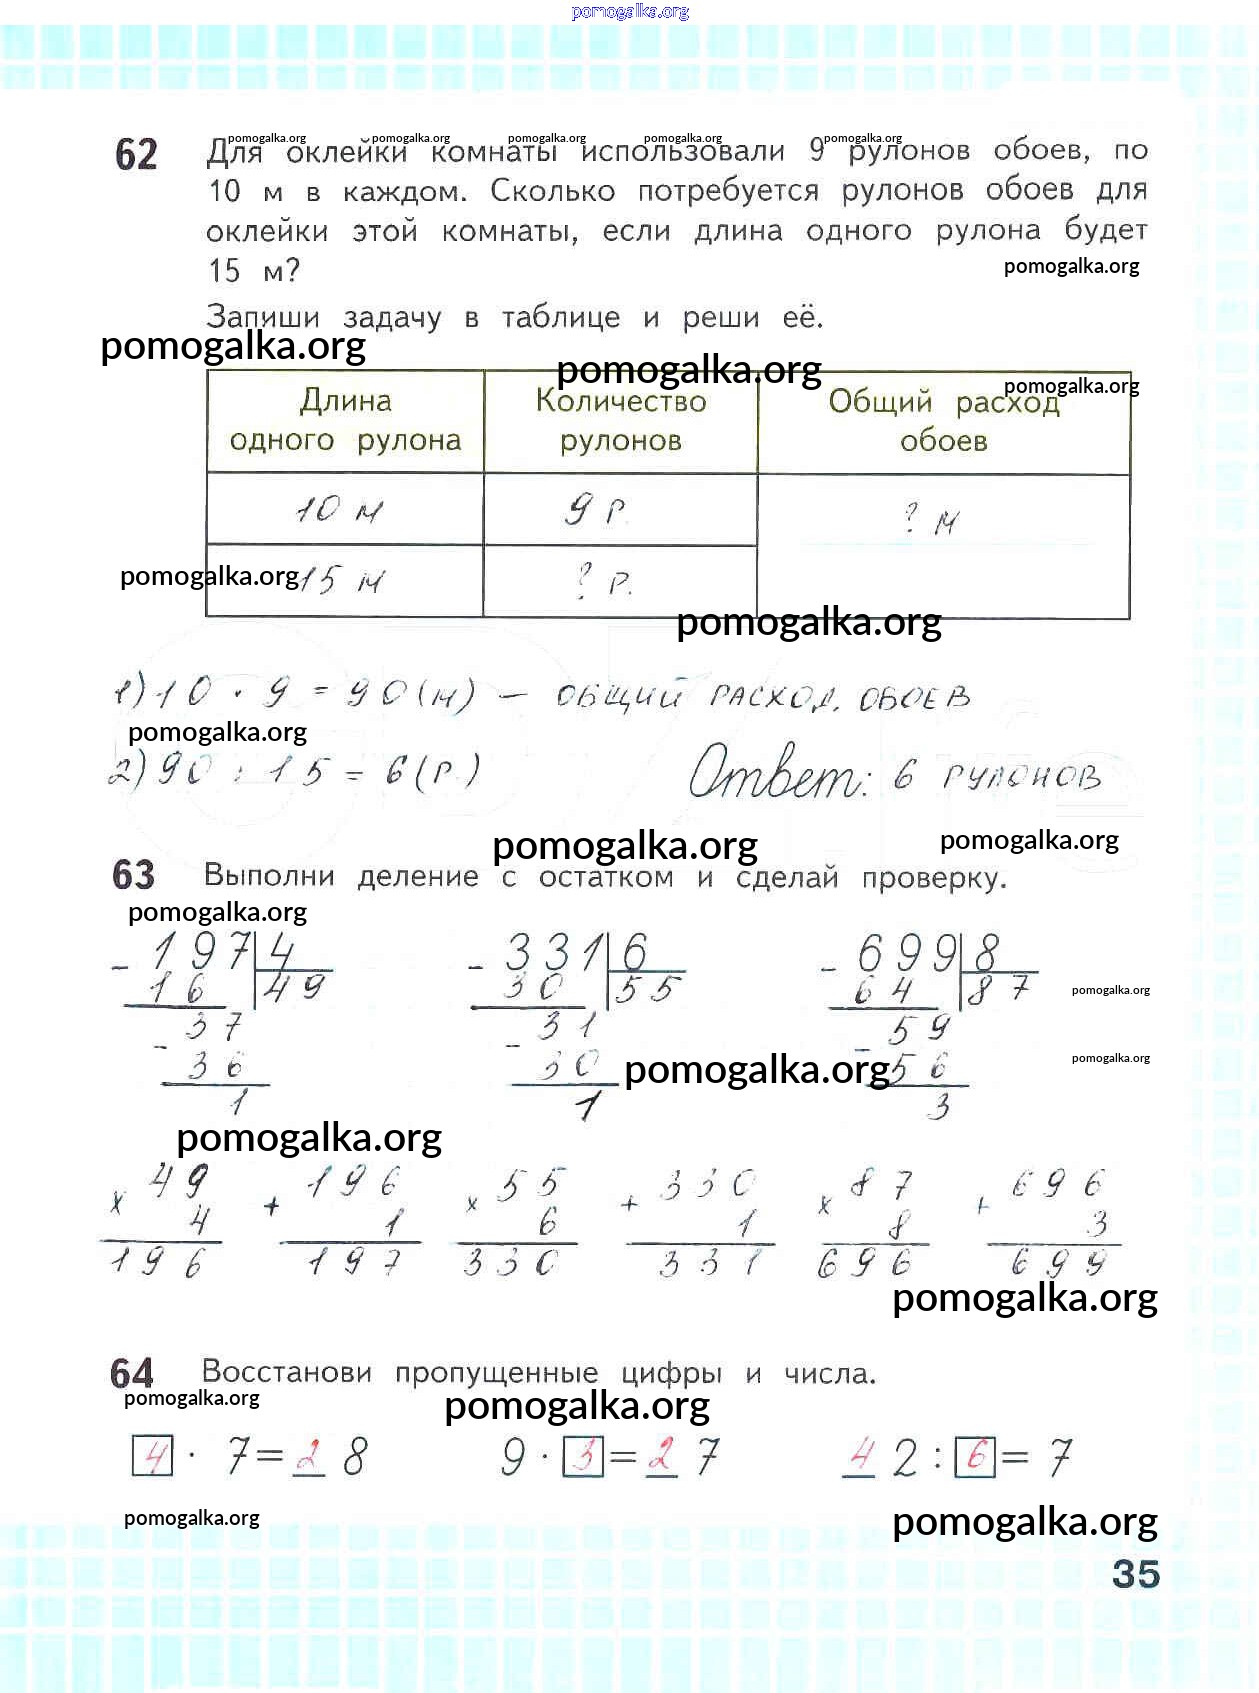 pomogalka.org
pomogalka.org pomogalka.org pomogalka.org pomogalka.org pomogalka.org
62 Для оклейки комнаты использовали 9 рулонов обоев, по
10 м в каждом. Сколько потребуется рулонов обоев для
оклейки этой комнаты, если длина одного рулона будет
15 м?
pomogalka.org
Запиши задачу в таблице и реши её.
pomogalka.org
pomogalka.org
pomogalka.org
Длина одного рулона
Количество рулонов
Общий расход обоев
10 м 9 р. ? м
pomogalka.org
15 м ? р.
pomogalka.org
1) 10 · 9 = 90 (м) — ОБЩИЙ РАСХОД ОБОЕВ
pomogalka.org
2) 90 : 15 = 6 (р.) Ответ: 6 РУЛОНОВ
pomogalka.org pomogalka.org
63 Выполни деление с остатком и сделай проверку.
pomogalka.org
- 197 4 - 331 6 - 699 8
16 49 30 55 64 87
pomogalka.org
- 37 - 31 - 59
pomogalka.org
36 30 56
pomogalka.org
1 1 3
pomogalka.org
x 49 + 196 x 55 + 330 x 87 + 696
4 1 6 1 8 3
196 197 330 331 696 699
pomogalka.org
64 Восстанови пропущенные цифры и числа.
pomogalka.org pomogalka.org
4 · 7 = 2 8 9 · 3 = 2 7 4 2 : 6 = 7
pomogalka.org pomogalka.org
35